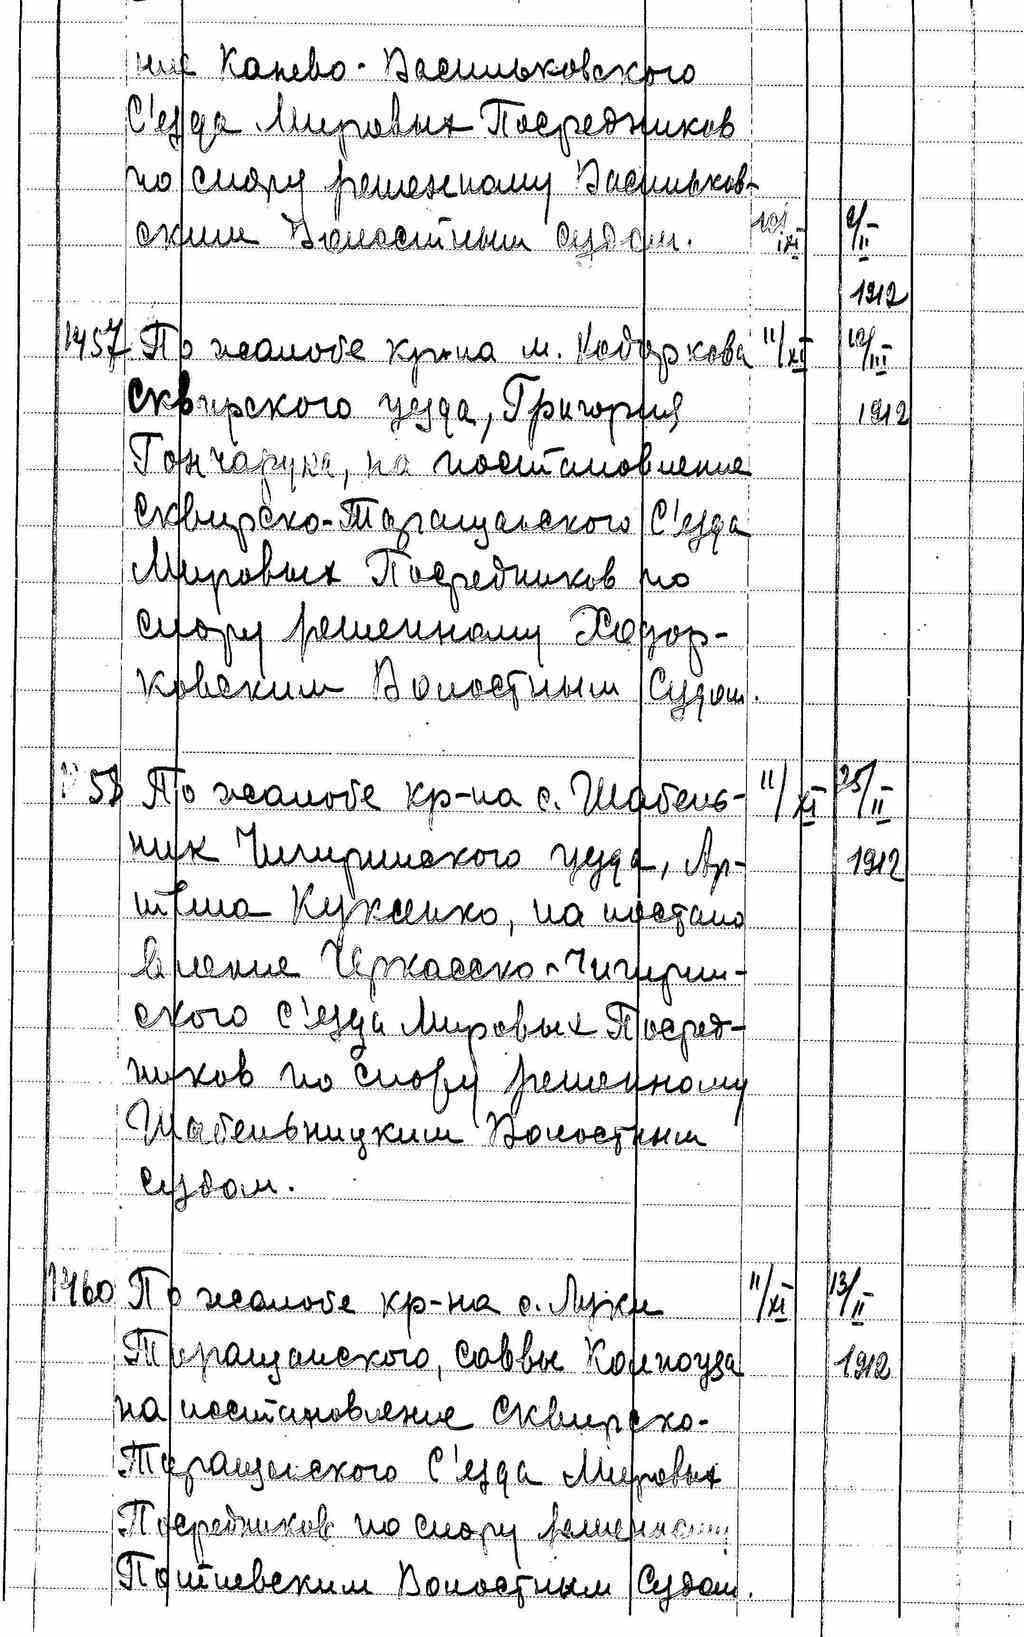 ние Канево-Васильковского
С'езда Мировых Посредников
по спору решенному Васильков-
ским Волостным судом. XI 9/II
1912
1457 По жалобе кр-на м. Ходоркова 11/XI 12/III
Сквирского уезда, Григория 1912
Гончарука, на постановление
Сквирско-Таращанского С'езда
Мировых Посредников по
спору решенному Ходор-
ковским Волостным Судом.
58 По жалобе кр-на с. Шабель- 11/XI 25/II
ник Чигиринского уезда, Ар- 1912
тема Куксенко, на постано
вление Черкасско-Чигирин-
ского с'езда Мировых Посред-
ников по спору решенному
Шабельницким Волостным
судом.
1460 По жалобе кр-на с. Луки 11/XI 13/II
Таращанского, Саввы Колпоуза 1912
на постановление Сквирско-
Таращанского С'езда Мировых
Посредников по спору решенному
Пятиевским Волостным Судом.